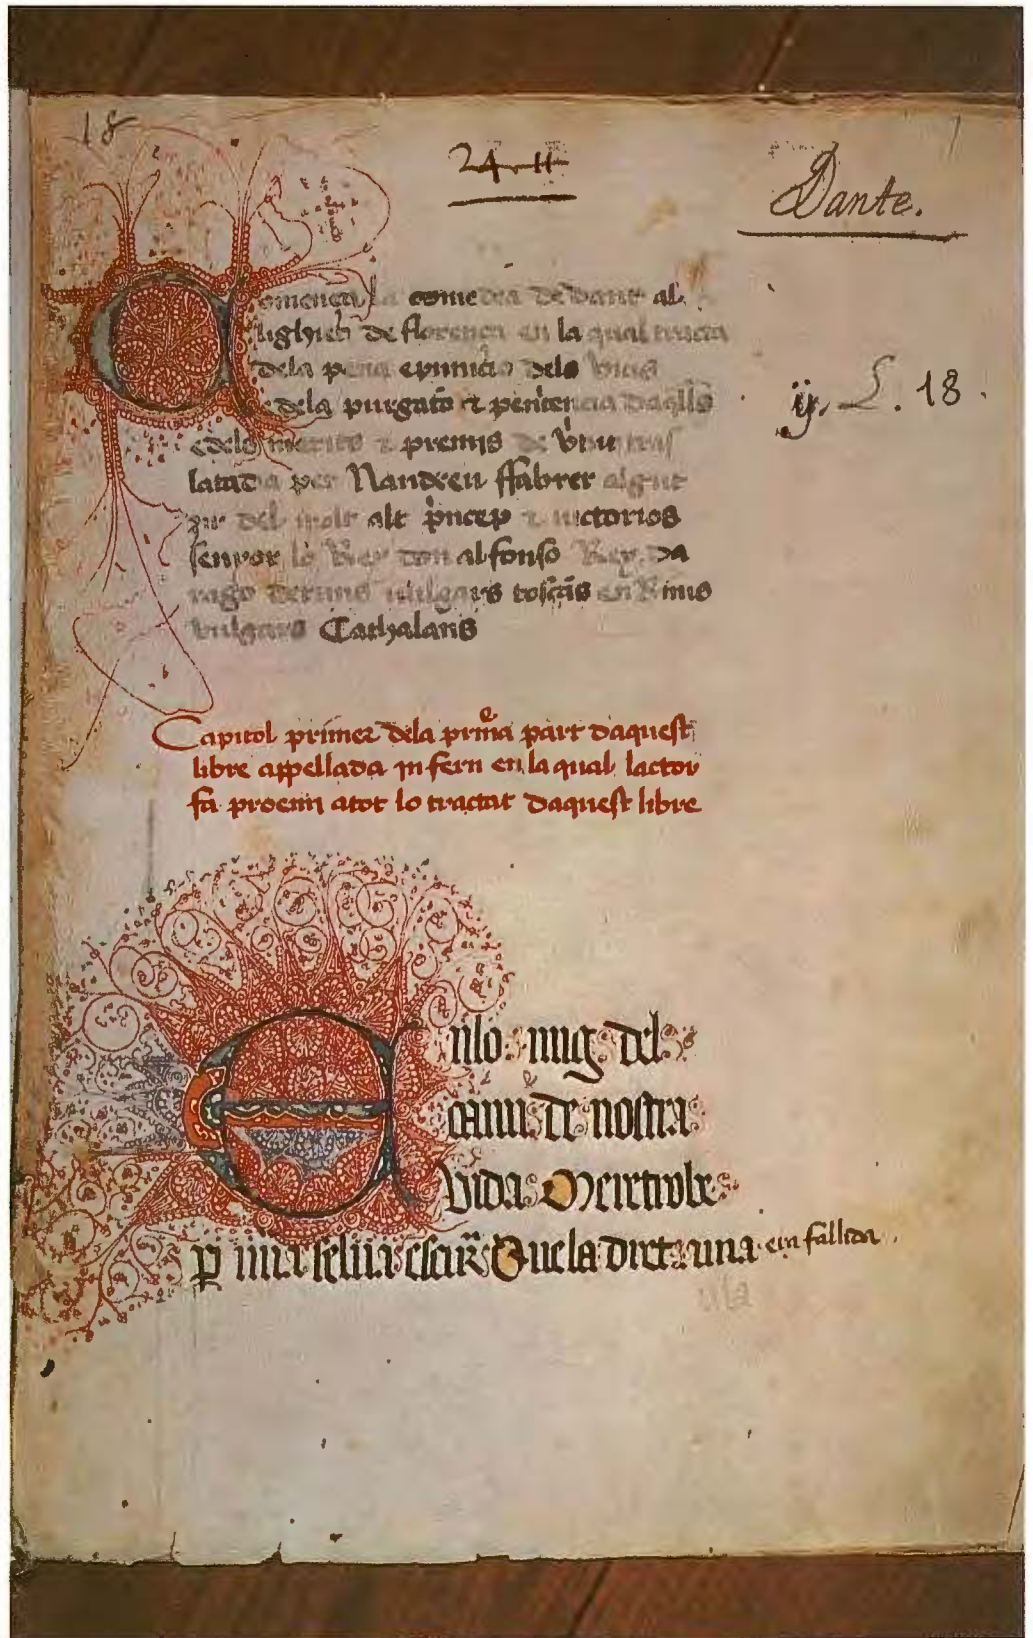 18
24 11
Dante.
Comença la comedia de dant al
lighieri de florença en la qual tracta
dela pena e punicio dels vicis
e dela purgato τ penitencia daqlls
e dels merits τ premis de virtu tras
latada per Nandreu ffabrer algut
zir del molt alt princep τ victorios
senyor lo Rey don alfonso Rey da
rago de rims vulgars toscãs en Rims
vulgars Cathalans
ij. L. 18.
Capitol primer dela prima part daquest
libre appellada infern en la qual lactor
fa prohemi atot lo tractat daquest libre
Enlo mig del
cami de nostra
vida Me retrobe
per una selva escura Que la dreta via era fallida.
via